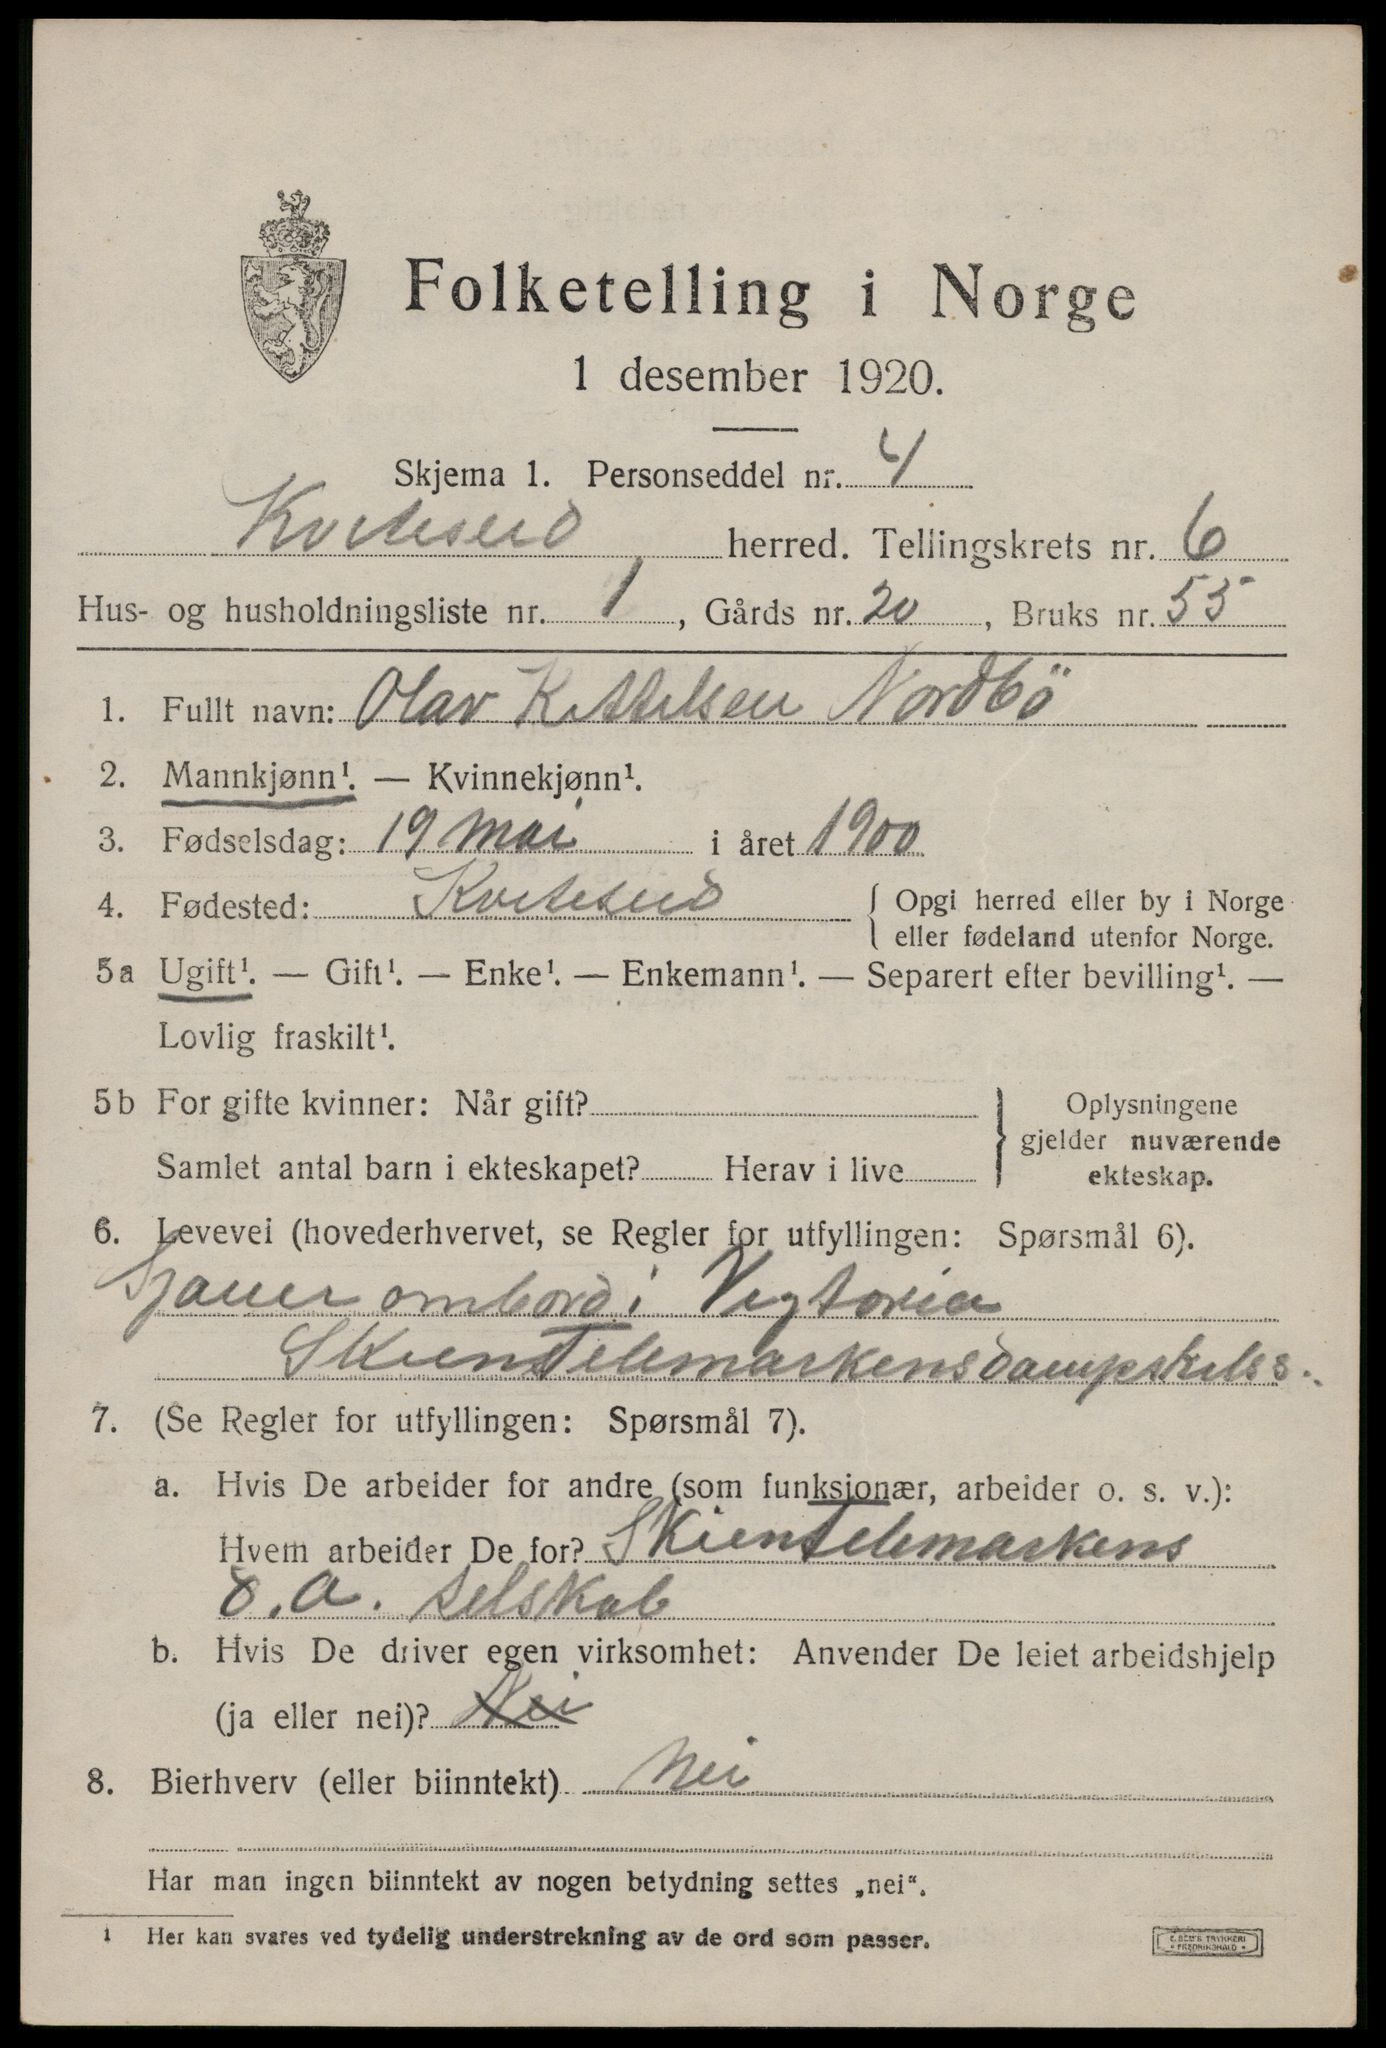 Folketelling i Norge
1 desember 1920.
Skjema 1. Personseddel nr. 4
Kviteseid herred. Tellingskrets nr. 6
Hus- og husholdningsliste nr. 1, Gårds nr. 20, Bruks nr. 55
1. Fullt navn: Olav Kittelsen Nordbö
2. Mannkjønn¹. — Kvinnekjønn¹.
3. Fødselsdag: 19 mai i året 1900
4. Fødested: Kviteseid { Opgi herred eller by i Norge
eller fødeland utenfor Norge.
5a Ugift¹. — Gift¹. — Enke¹. — Enkemann¹. — Separert efter bevilling¹. —
Lovlig fraskilt¹.
5b For gifte kvinner: Når gift? } Oplysningene
gjelder nuværende
Samlet antal barn i ekteskapet? Herav i live ekteskap.
6. Levevei (hovederhvervet, se Regler for utfyllingen: Spørsmål 6).
Sjauer ombord i Vigtoria
Skiens Telemarkens dampskibss.
7. (Se Regler for utfyllingen: Spørsmål 7).
a. Hvis De arbeider for andre (som funksjonær, arbeider o. s. v.):
Hvem arbeider De for? Skien Telemarkens
D. A. selskab
b. Hvis De driver egen virksomhet: Anvender De leiet arbeidshjelp
(ja eller nei)? Nei
8. Bierhverv (eller biinntekt) Nei
Har man ingen biinntekt av nogen betydning settes „nei“.
1 Her kan svares ved tydelig understrekning av de ord som passer.
E. SEM'S TRYKKERI
* FREDRIKSHALD *